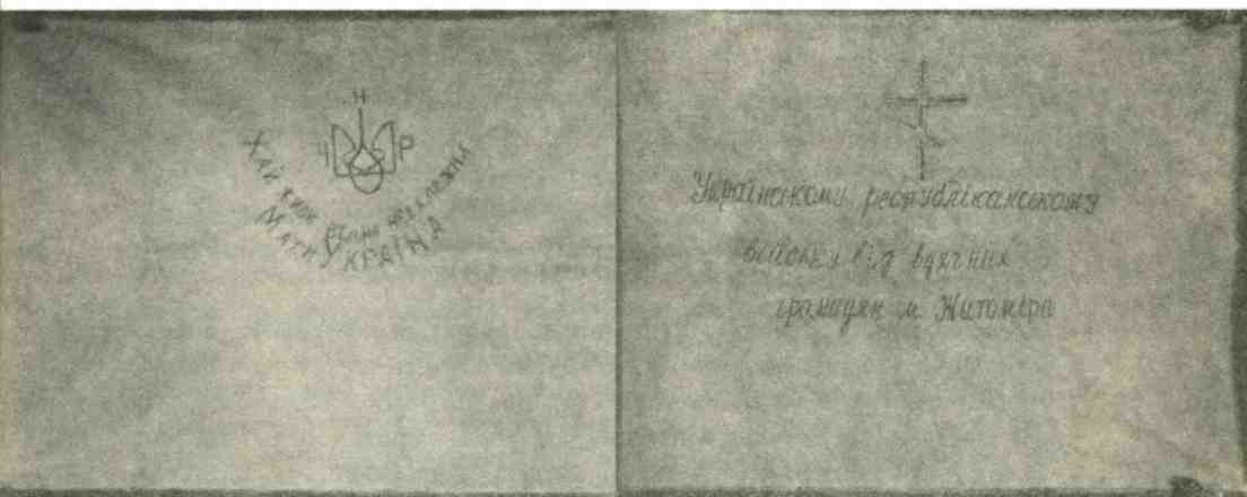 Н
У Р
ХАЙ ЖИВЕ ВІЛЬНА НЕЗАЛЕЖНА
МАТИ УКРАЇНА
Українському републіканському
війську від вдячних
громадян м Житомира